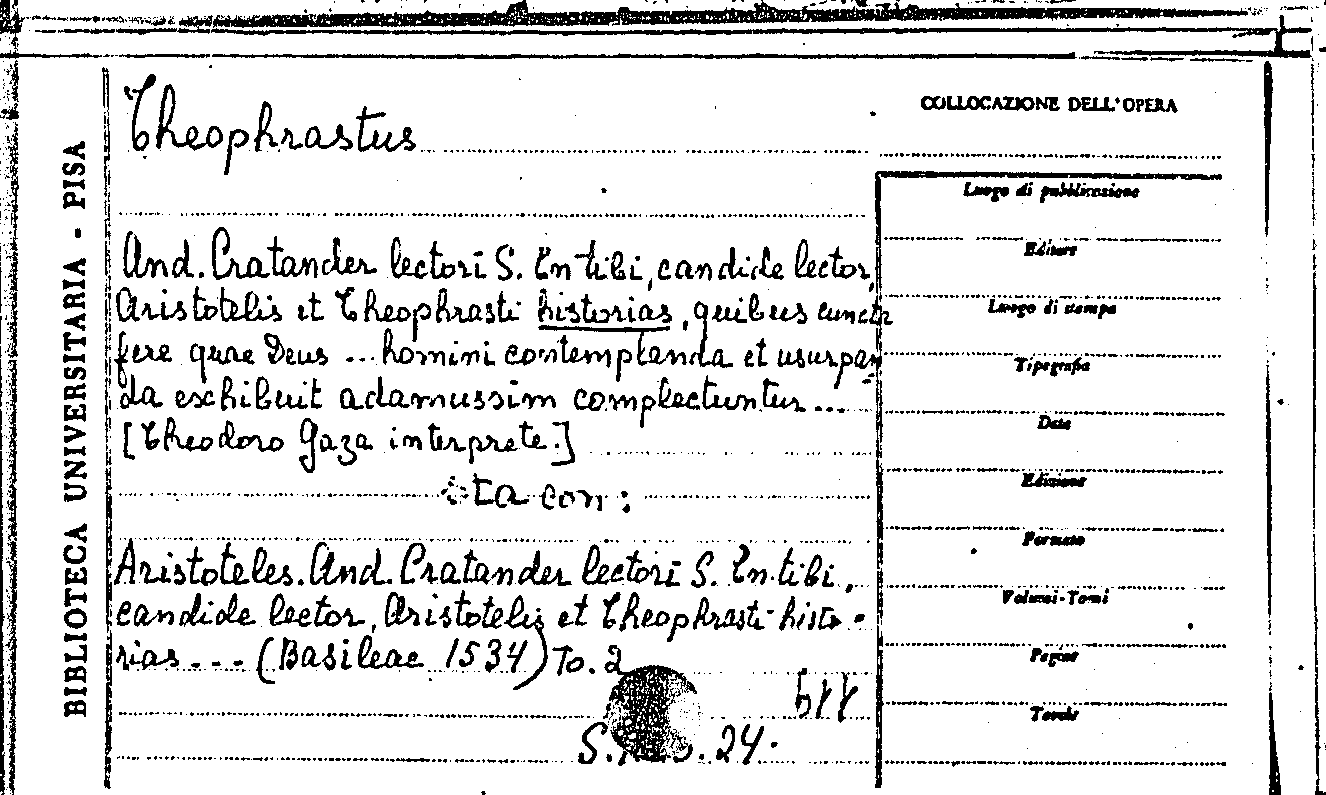 BIBLIOTECA UNIVERSITARIA - PISA
Theophrastus
And. Cratander lectori S. En tibi, candide lector,
Aristotelis et Theophrasti historias, quibus cuncta
fere quae Deus ... homini contemplanda et usurpan
da exhibuit adamussim complectuntur...
[Theodoro Gaza interprete.]
con:
Aristoteles. And. Cratander lectori S. En tibi,
candide lector, Aristotelis et Theophrasti histo-
rias... (Basileae 1534) To. 2
S. 24.
COLLOCAZIONE DELL'OPERA
Luogo di pubblicazione
Editore
Luogo di stampa
Tipografia
Data
Edizione
Formato
Volumi-Tomi
Pagine
Tavole